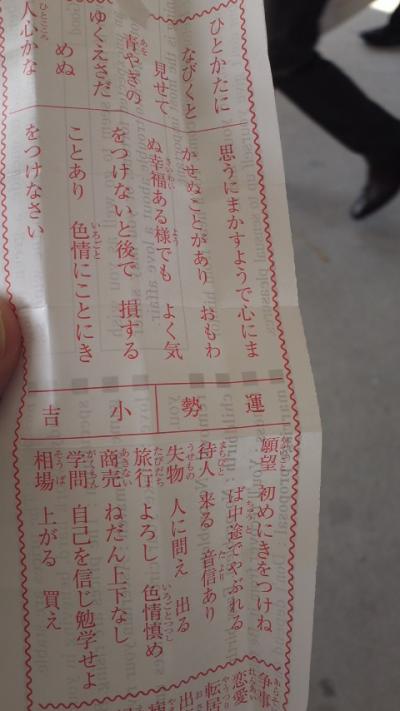 ひとかたに
なびくと
見せて
青やぎの
ゆくえさだ
めぬ
人心かな
思うにまかすようで心にま
かせぬことがあり おもわ
ぬ幸福ある様でも よく気
をつけないと後で 損する
ことあり 色情にことにき
をつけなさい
運勢
小吉
願望 初めにきをつけね
ば中途でやぶれる
待人 来る 音信あり
失物 人に問え 出る
旅行 よろし 色情慎め
商売 ねだん上下なし
学問 自己を信じ勉学せよ
相場 上がる 買え
争事
恋愛
転居